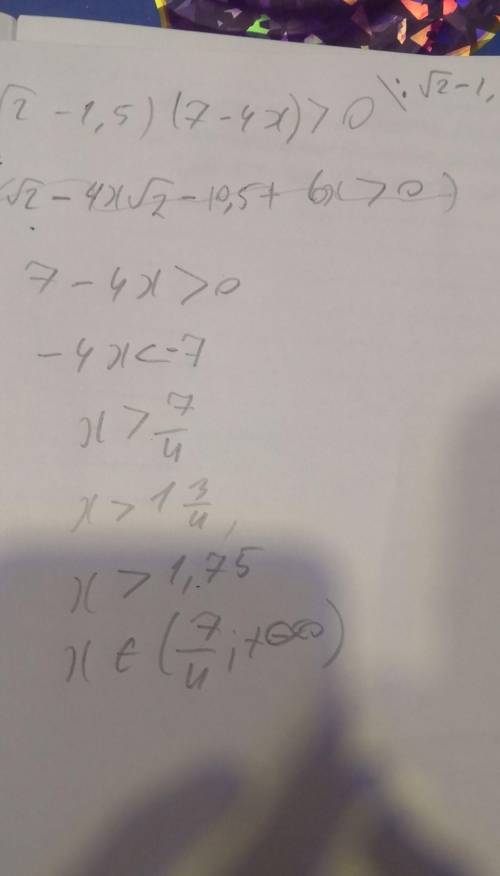 √2 - 1,5) (7 - 4x) > 0 \: √2 - 1,
√2 - 4x√2 - 10,5 + 6x > 0)
7 - 4x > 0
- 4x < -7
x > 7/4
x > 1 3/4,
x > 1,75
x ∈ (7/4; +∞)